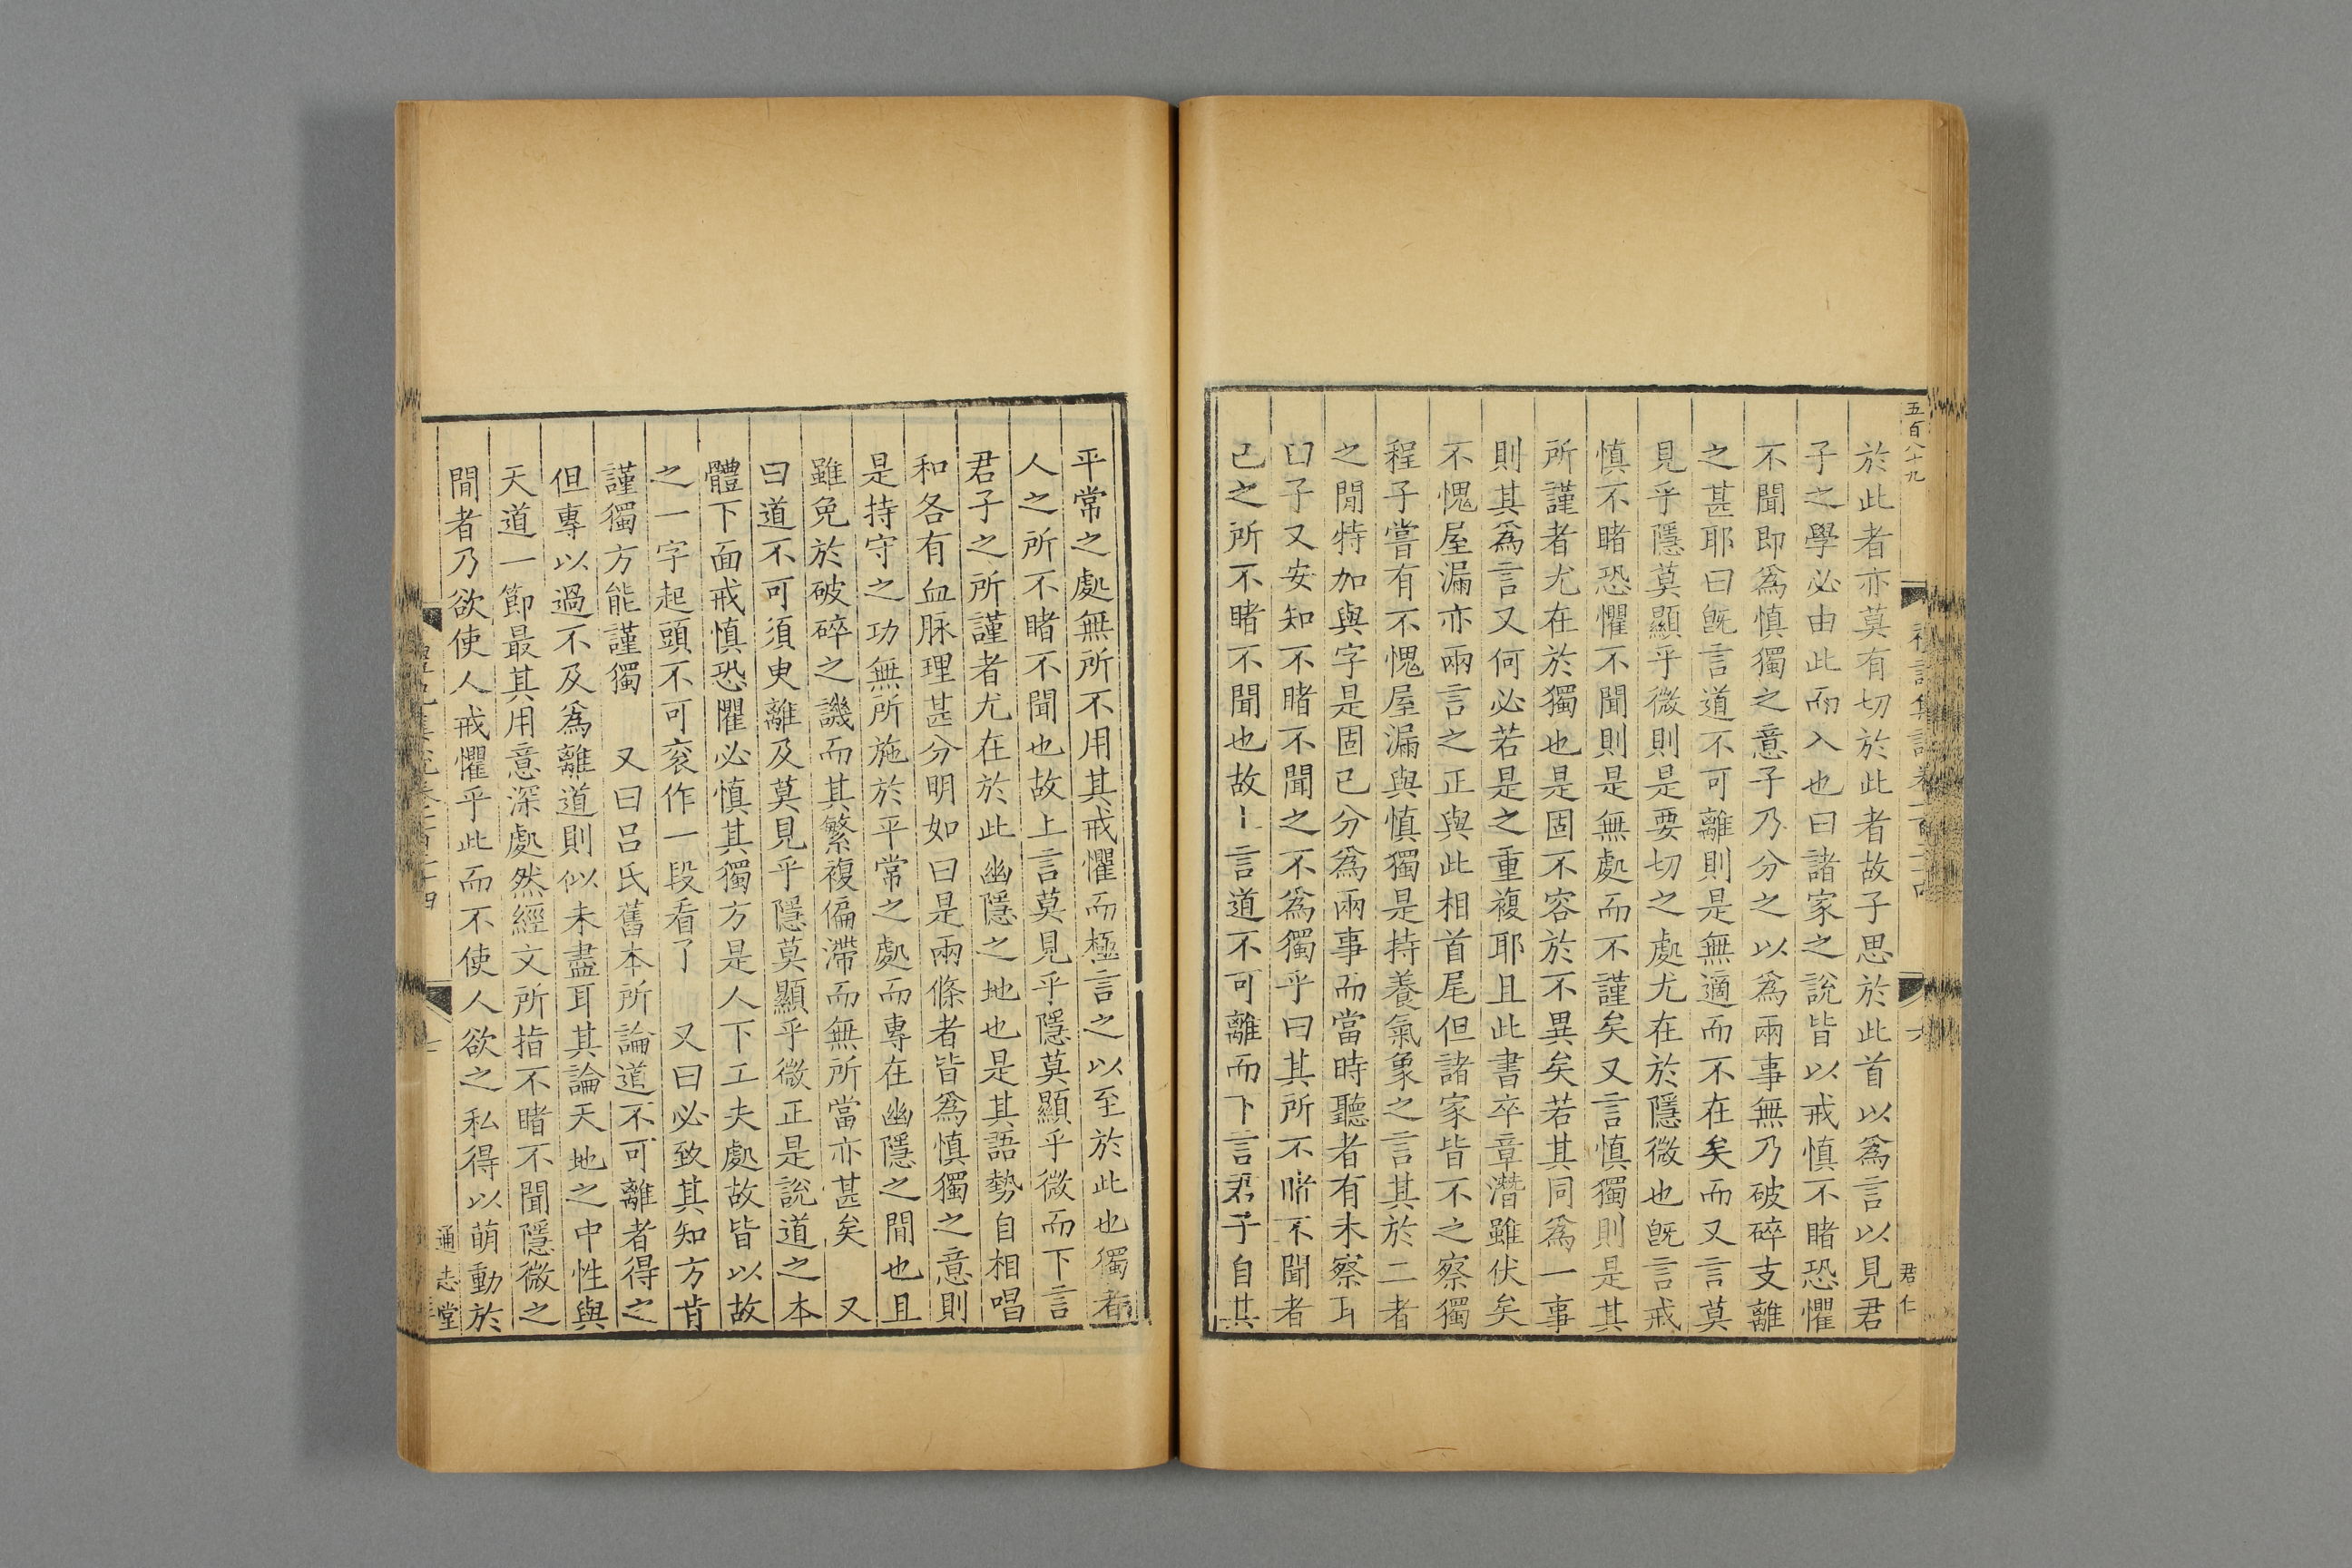 五百八十九
君仁
於此者亦莫有切於此者故子思於此首以爲言以見君
子之學必由此而入也曰諸家之說皆以戒慎不睹恐懼
不聞即爲慎獨之意子乃分之以爲兩事無乃破碎支離
之甚耶曰旣言道不可離則是無適而不在矣而又言莫
見乎隱莫顯乎微則是要切之處尤在於隱微也旣言戒
慎不睹恐懼不聞則是無處而不謹矣又言慎獨則是其
所謹者尤在於獨也是固不容於不異矣若其同爲一事
則其爲言又何必若是之重複耶且此書卒章潛雖伏矣
不愧屋漏亦兩言之正與此相首尾但諸家皆不之察獨
程子嘗有不愧屋漏與慎獨是持養氣象之言其於二者
之閒特加與字是固已分爲兩事而當時聽者有未察耳
曰子又安知不睹不聞之不爲獨乎曰其所不睹不聞者
己之所不睹不聞也故言道不可離而下言君子自其
平常之處無所不用其戒懼而極言之以至於此也獨者
人之所不睹不聞也故上言莫見乎隱莫顯乎微而下言
君子之所謹者尤在於此幽隱之地也是其語勢自相唱
和各有血脉理甚分明如曰是兩條者皆爲慎獨之意則
是持守之功無所施於平常之處而專在幽隱之閒也且
雖免於破碎之譏而其繁複偏滯而無所當亦甚矣 又
曰道不可須臾離及莫見乎隱莫顯乎微正是說道之本
體下面戒慎恐懼必慎其獨方是人下工夫處故皆以故
之一字起頭不可衮作一段看了 又曰必致其知方肯
謹獨方能謹獨 又曰呂氏舊本所論道不可離者得之
但專以過不及爲離道則似未盡耳其論天地之中性與
天道一節最其用意深處然經文所指不睹不聞隱微之
閒者乃欲使人戒懼乎此而不使人欲之私得以萌動於
通志堂